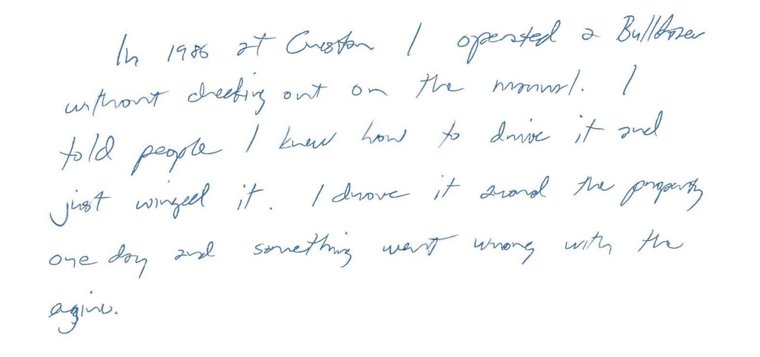 In 1986 at Creston I operated a Bulldozer
without checking out on the manual. I
told people I knew how to drive it and
just winged it. I drove it around the property
one day and something went wrong with the
engine.